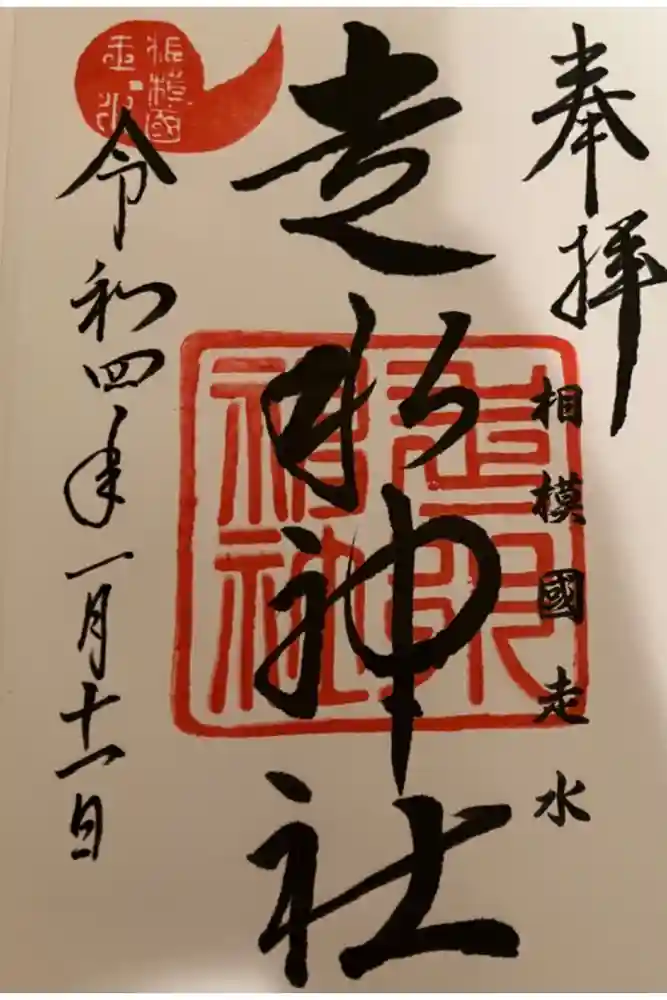 奉拝
相模國走水
走水神社
走水神社
令和四年一月十一日
相模國
走水